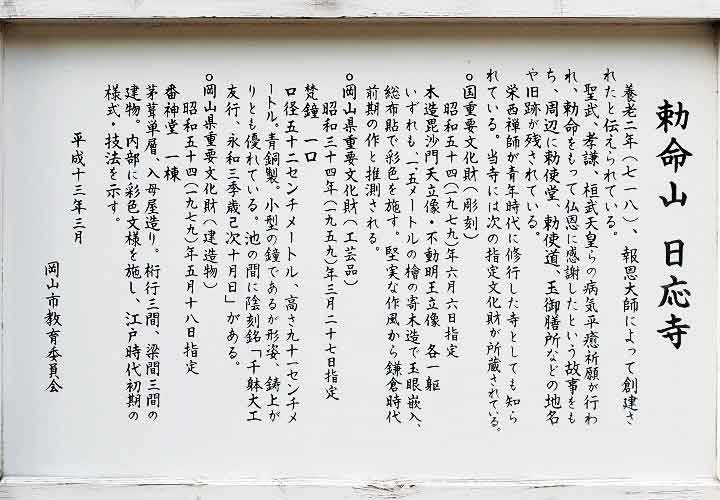 勅命山 日応寺
養老二年(七一八)、報恩大師によって創建さ
れたと伝えられている。
聖武、孝謙、桓武天皇らの病気平癒祈願が行わ
れ、勅命をもって仏恩に感謝したという故事をも
ち、周辺に勅使堂、勅使道、玉御膳所などの地名
や旧跡が残されている。
栄西禅師が青年時代に修行した寺としても知ら
れている。当寺には次の指定文化財が所蔵されている。
○国重要文化財(彫刻)
昭和五十四(一九七九)年六月六日指定
木造毘沙門天立像・不動明王立像 各一躯
いずれも、一・五メートルの檜の寄木造で玉眼嵌入、
総布貼で彩色を施す。堅実な作風から鎌倉時代
前期の作と推測される。
○岡山県重要文化財(工芸品)
昭和三十四年(一九五九)年三月二十七日指定
梵鐘 一口
口径五十二センチメートル、高さ九十一センチメ
ートル。青銅製。小型の鐘であるが形姿、鋳上が
りとも優れている。池の間に陰刻銘「千躰大工
友行、永和三季歳己次十月日」がある。
○岡山県重要文化財(建造物)
昭和五十四(一九七九)年五月十八日指定
番神堂 一棟
茅葺単層、入母屋造り。桁行三間、梁間三間の
建物。内部に彩色文様を施し、江戸時代初期の
様式・技法を示す。
平成十三年三月
岡山市教育委員会